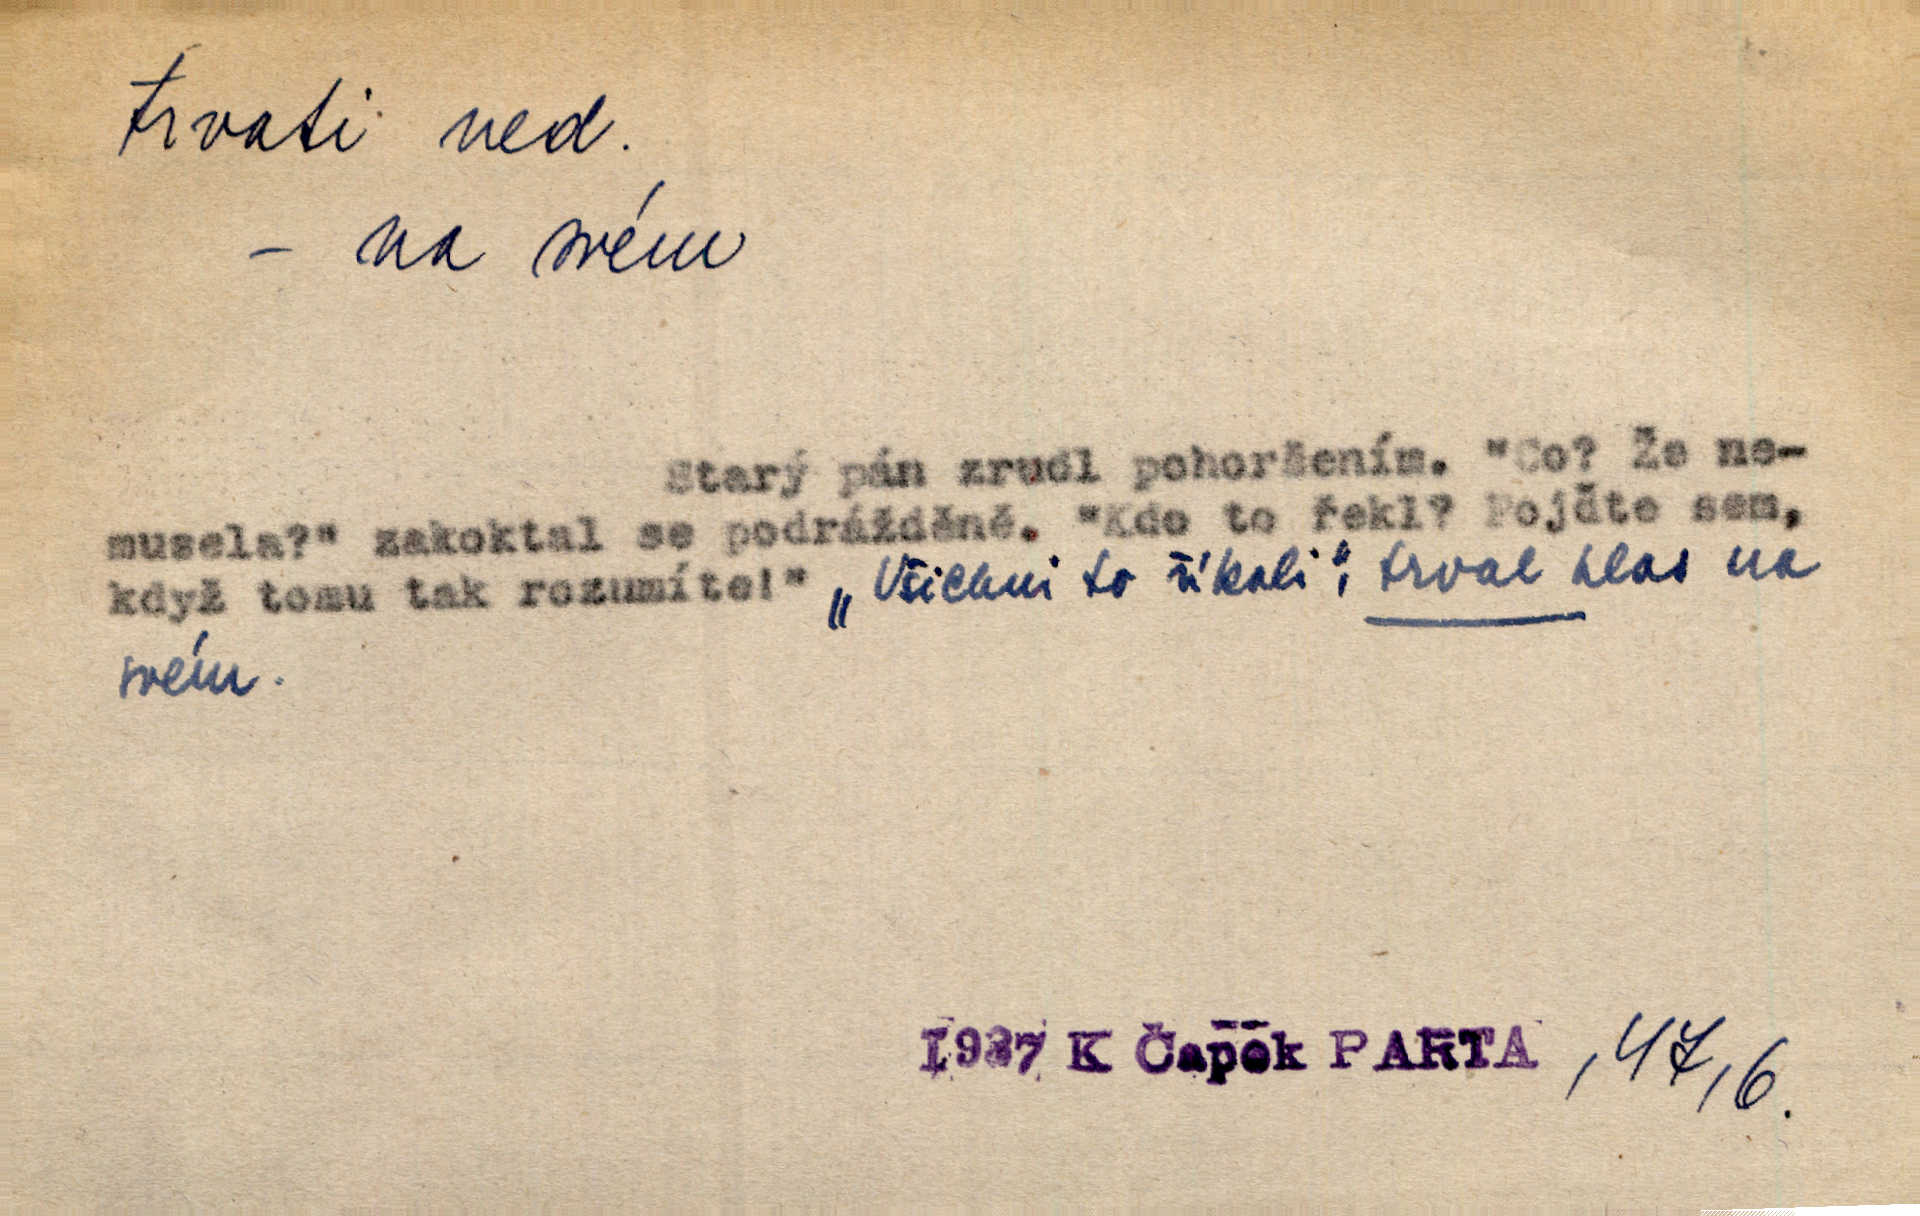 trvati ned.
– na svém
Starý pán zrudl pohoršením. "Co? Že ne-
musela?" zakoktal se podrážděně. "Kdo to řekl? Pojďte sem,
když tomu tak rozumíte!" „Všichni to říkali“, trval hlas na
svém.
1937 K Čapek PARTA , 47, 6.